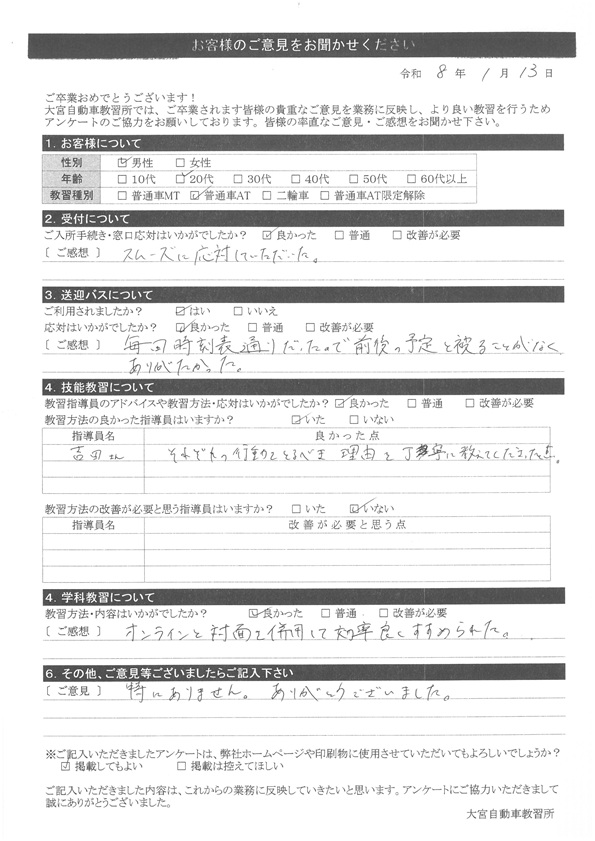 お客様のご意見をお聞かせください
令和 8 年 1 月 13 日
ご卒業おめでとうございます！
大宮自動車教習所では、ご卒業されます皆様の貴重なご意見を業務に反映し、より良い教習を行うため
アンケートのご協力をお願いしております。皆様の率直なご意見・ご感想をお聞かせ下さい。
1. お客様について
性別 ☑男性 □女性
年齢 □10代 ☑20代 □30代 □40代 □50代 □60代以上
教習種別 □普通車MT ☑普通車AT □二輪車 □普通車AT限定解除
2. 受付について
ご入所手続き・窓口応対はいかがでしたか？ ☑良かった □普通 □改善が必要
[ ご感想 ] スムーズに応対していただいた。
3. 送迎バスについて
ご利用されましたか？ ☑はい □いいえ
応対はいかがでしたか？ ☑良かった □普通 □改善が必要
[ ご感想 ] 毎回時刻表通りだったので前後の予定と被ることがなく
ありがたかった。
4. 技能教習について
教習指導員のアドバイスや教習方法・応対はいかがでしたか？ ☑良かった □普通 □改善が必要
教習方法の良かった指導員はいますか？ ☑いた □いない
指導員名 良かった点
吉田さん それぞれの行動をとるべき 理由を丁寧に教えてくださった点。
教習方法の改善が必要と思う指導員はいますか？ □いた ☑いない
指導員名 改善が必要と思う点
4. 学科教習について
教習方法・内容はいかがでしたか？ ☑良かった □普通 □改善が必要
[ ご感想 ] オンラインと対面を併用して効率良くすすめられた。
6. その他、ご意見等ございましたらご記入下さい
[ ご意見 ] 特にありません。ありがとうございました。
※ご記入いただきましたアンケートは、弊社ホームページや印刷物に使用させていただいてもよろしいでしょうか？
☑掲載してもよい □掲載は控えてほしい
ご記入いただきました内容は、これからの業務に反映していきたいと思います。アンケートにご協力いただきまして
誠にありがとうございました。
大宮自動車教習所